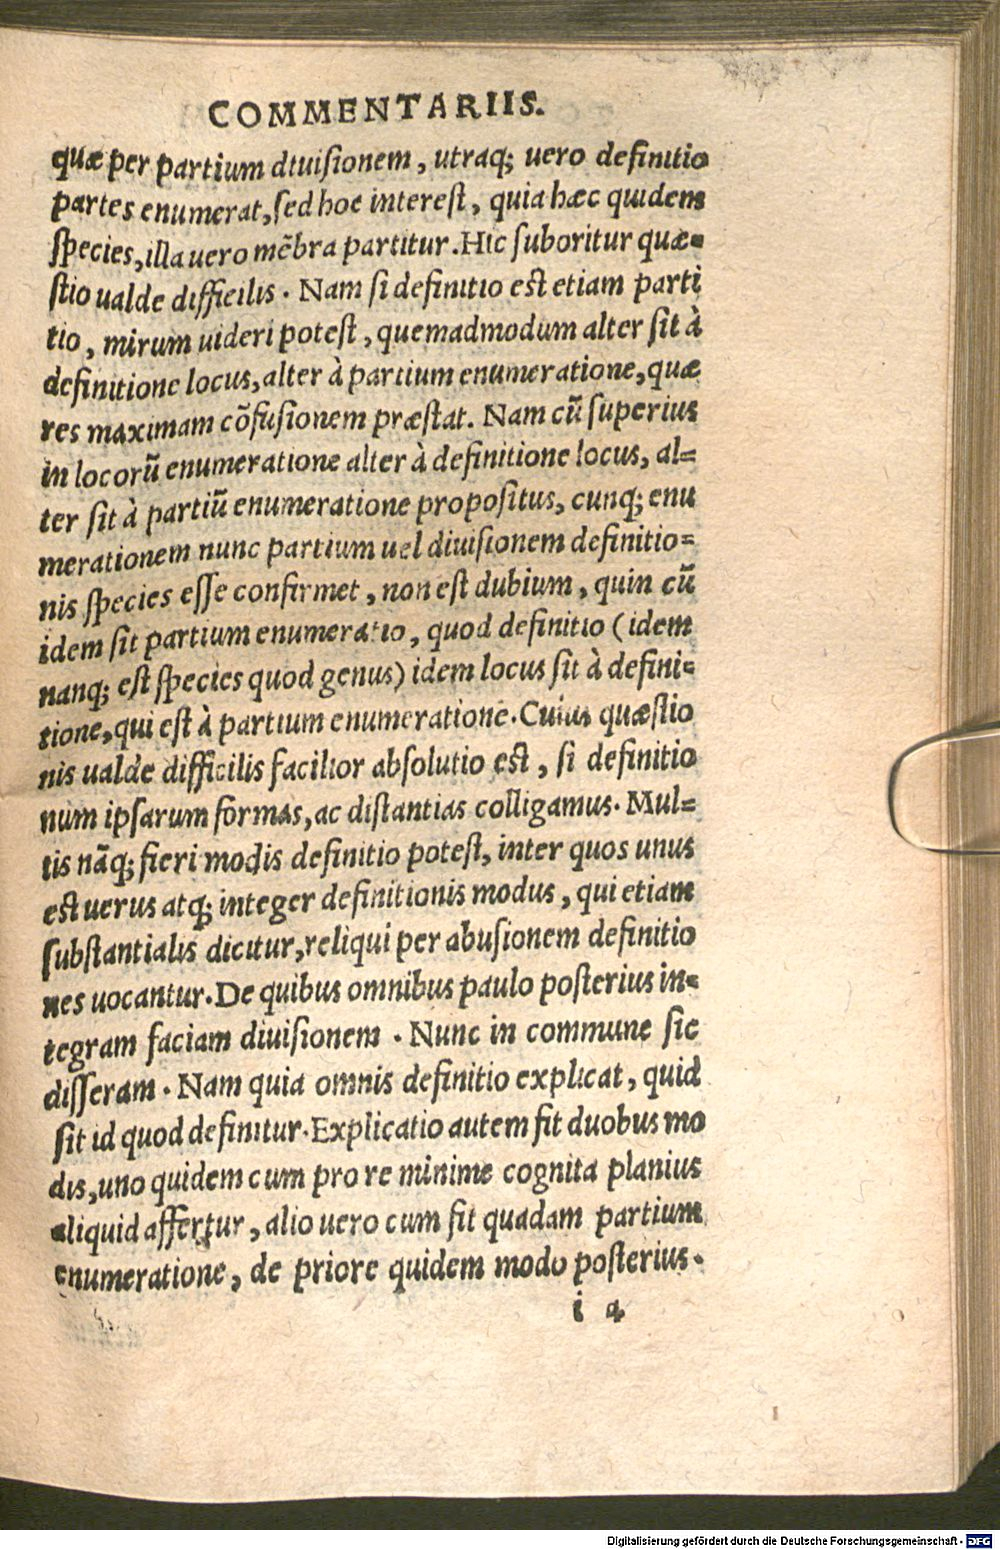 COMMENTARIIS.
quæ per partium diuisionem, utraq; uero definitio
partes enumerat, sed hoc interest, quia hæc quidem
species, illa uero mẽbra partitur. Hic suboritur quæ-
stio ualde difficilis. Nam si definitio est etiam parti
tio, mirum uideri potest, quemadmodum alter sit à
definitione locus, alter à partium enumeratione, quæ
res maximam cõfusionem præstat. Nam cũ superius
in locorũ enumeratione alter à definitione locus, al-
ter sit à partiũ enumeratione propositus, cunq; enu
merationem nunc partium uel diuisionem definitio-
nis species esse confirmet, non est dubium, quin cũ
idem sit partium enumeratio, quod definitio (idem
nanq; est species quod genus) idem locus sit à defini-
tione, qui est à partium enumeratione. Cuius quæstio
nis ualde difficilis facilior absolutio est, si definitio
num ipsarum formas, ac distantias colligamus. Mul-
tis nãq; fieri modis definitio potest, inter quos unus
est uerus atq; integer definitionis modus, qui etiam
substantialis dicitur, reliqui per abusionem definitio
nes uocantur. De quibus omnibus paulo posterius in-
tegram faciam diuisionem. Nunc in commune sic
disseram. Nam quia omnis definitio explicat, quid
sit id quod definitur. Explicatio autem fit duobus mo
dis, uno quidem cum pro re minime cognita planius
aliquid affertur, alio uero cum fit quadam partium
enumeratione, de priore quidem modo posterius.
i 4
Digitalisierung gefördert durch die Deutsche Forschungsgemeinschaft - DFG